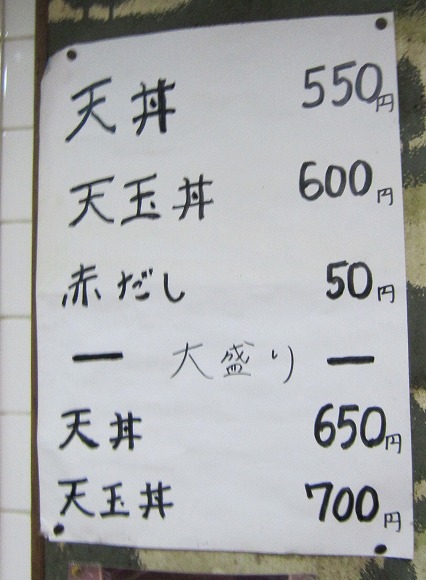 天丼 550円
天玉丼 600円
赤だし 50円
ー 大盛り ー
天丼 650円
天玉丼 700円